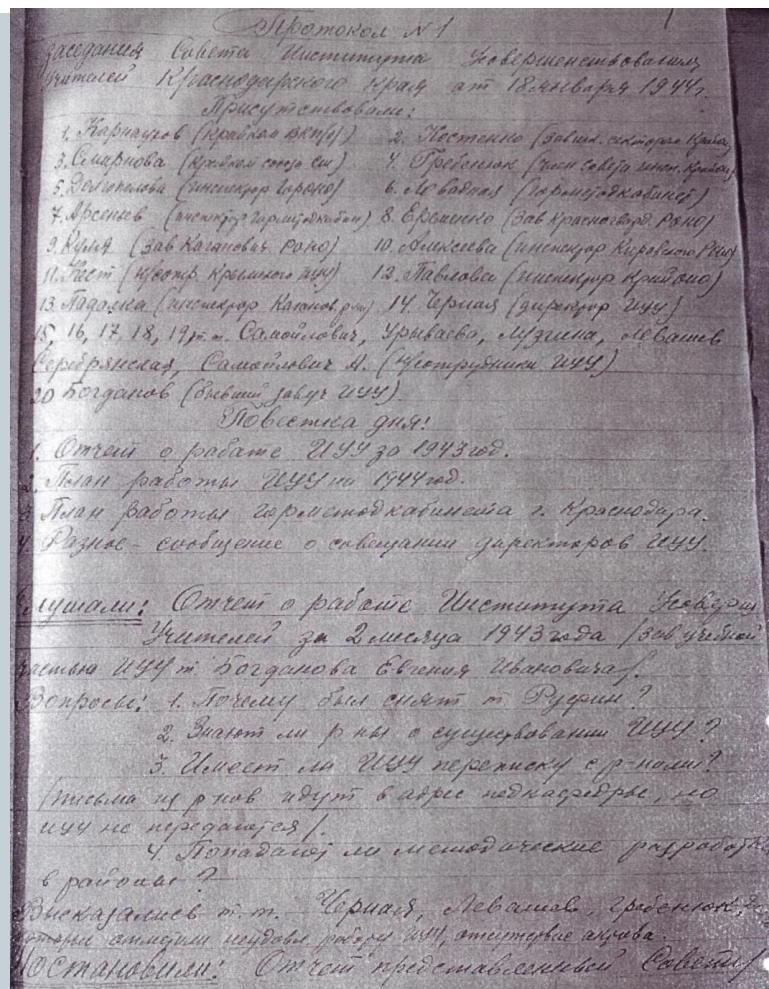 Протокол N 1
заседания Совета Института Усовершенствования
учителей Краснодарского края от 18 января 1944 г.
Присутствовали:
1. Карнаухов (Крайком ВКП/б/) 2. Костенко (зав. сектором
3. Смирнова (Крайком союза 4. Гребенюк (член совета
5. Долгополова (инспектор Гороно) 6. Ловадная (Горметодкабинет)
7. Арсеньев (инспектор горметодкабин) 8. Еременко (зав Красногвард. Роно)
9. Куля (зав Каганович. Роно) 10. Алексеева (инспектор Кировского
11. Кест Крымского ИУУ) 12. Павлова (инспектор
13. Падалка (инспектор Каганов. 14. Черная (директор ИУУ)
15, 16, 17, 18, 19, т.т. Самойлович, Урываева, Лузгина, Левашев
Серебрянская, Самойлович А. (н/сотрудники ИУУ)
20 Богданов (бывший завуч ИУУ).
Повестка дня:
1. Отчет о работе ИУУ за 1943 год.
2. План работы ИУУ на 1944 год.
3 План работы горметодкабинета г. Краснодара.
4. Разное - сообщение о совещании директоров ИУУ.
Слушали: Отчет о работе Института
Учителей за 2 месяца 1943 года /зав учебной
частью ИУУ т. Богданова Евгения Ивановича/.
Вопросы: 1. Почему был снят т. Руфин?
2. Знают ли р-ны о существовании ИУУ?
3. Имеет ли ИУУ переписку с р-нами?
/письма из р-нов идут в адрес педкафедры, но
ИУУ не передаются/.
4. Попадают ли методические разработки
в районы?
Высказались т.т. Черная, Левашов, Гребенюк,
отметили неудовл. работу ИУУ, отсутствие
Постановили: Отчет, представленный Совету